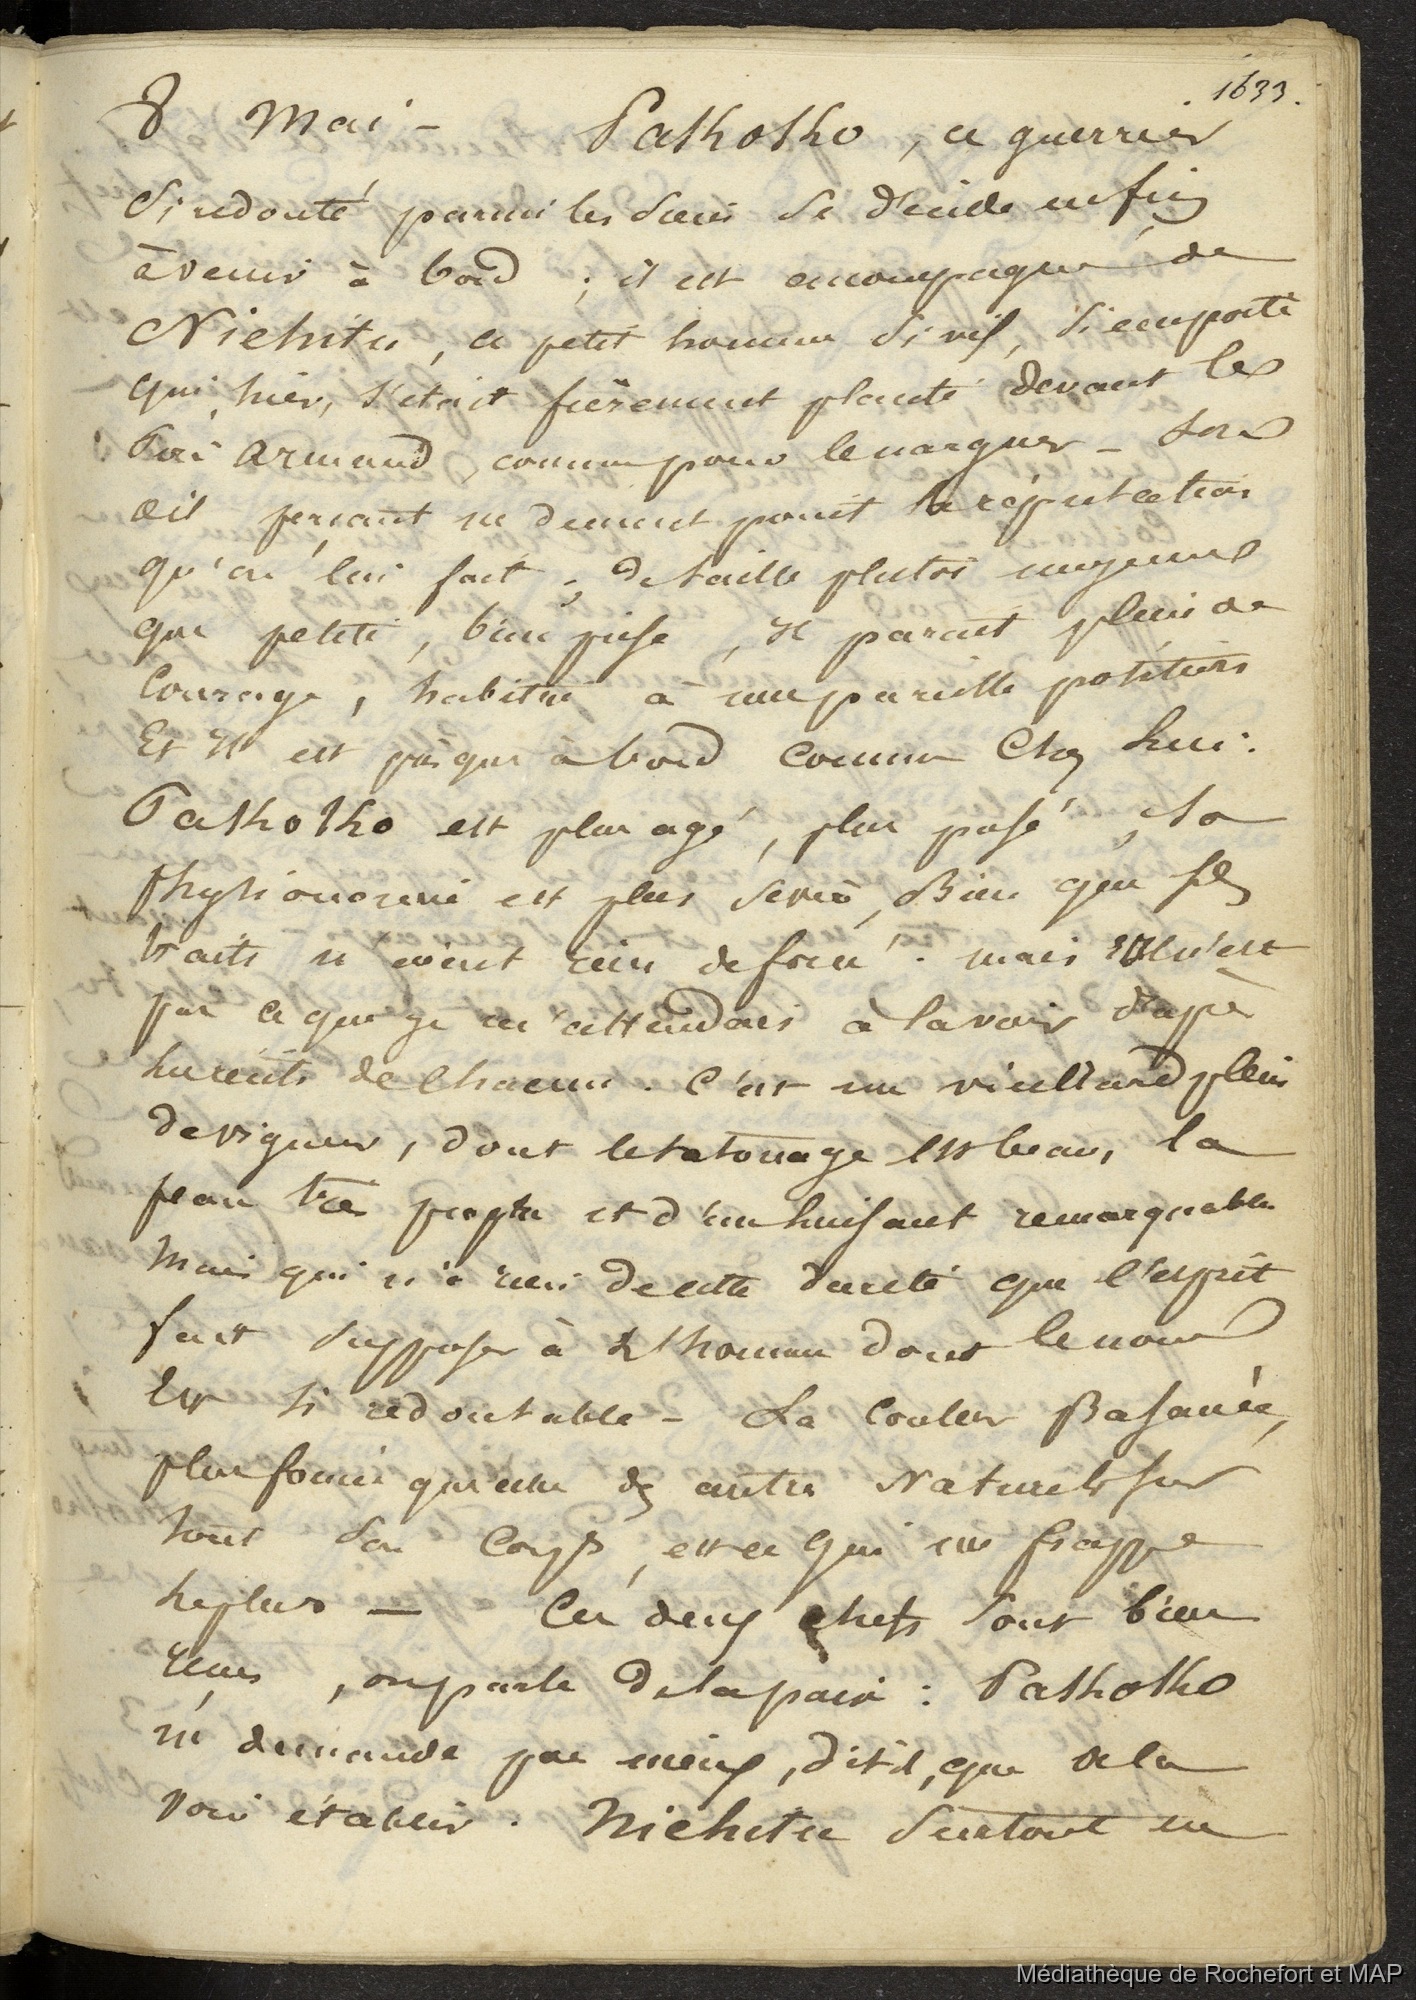 1633.
8 Mai - Pakhokho, ce guerrier
si redouté parmi les siens se décide enfin
à venir à bord ; il est accompagné de
Niehitu, ce petit homme si vif, si emporté
qui, hier, s'était fièrement planté devant le
Père Armand comme pour le narguer - Son
œil perçant ne dement point la réputation
qu'on lui fait ; de taille plutôt moyenne
que petite, bien pise, Il parait plein de
Courage, habitué à une pareille position
Et Il est presque à bord comme Chez lui.
Pakhokho est plus agé, plus posé, sa
physionomie est plus sevère, Bien que ses
traits n'aient rien de froncé. mais Il n'est
pas ce que je m'attendais à la voir d'après
les récits de Chacun. C'est un vieillard plein
de vigueur, dont le tatouage est beau, la
peau très propre et d'un luisant remarquable
Mais qui n'a rien de cette dureté que l'esprit
fait supposer à l'homme dont le nom
Est si redoutable - La Couleur Basanée,
plus foncée que celle des autres Naturels sur
tout son Corps, est ce qui me frappe
le plus — Ces deux chefs sont bien
reçus, on parle de la paix : Pakhokho
ne demande pas mieux, dit-il, que de la
voir établir. Niehitu surtout en
Médiathèque de Rochefort et MAP